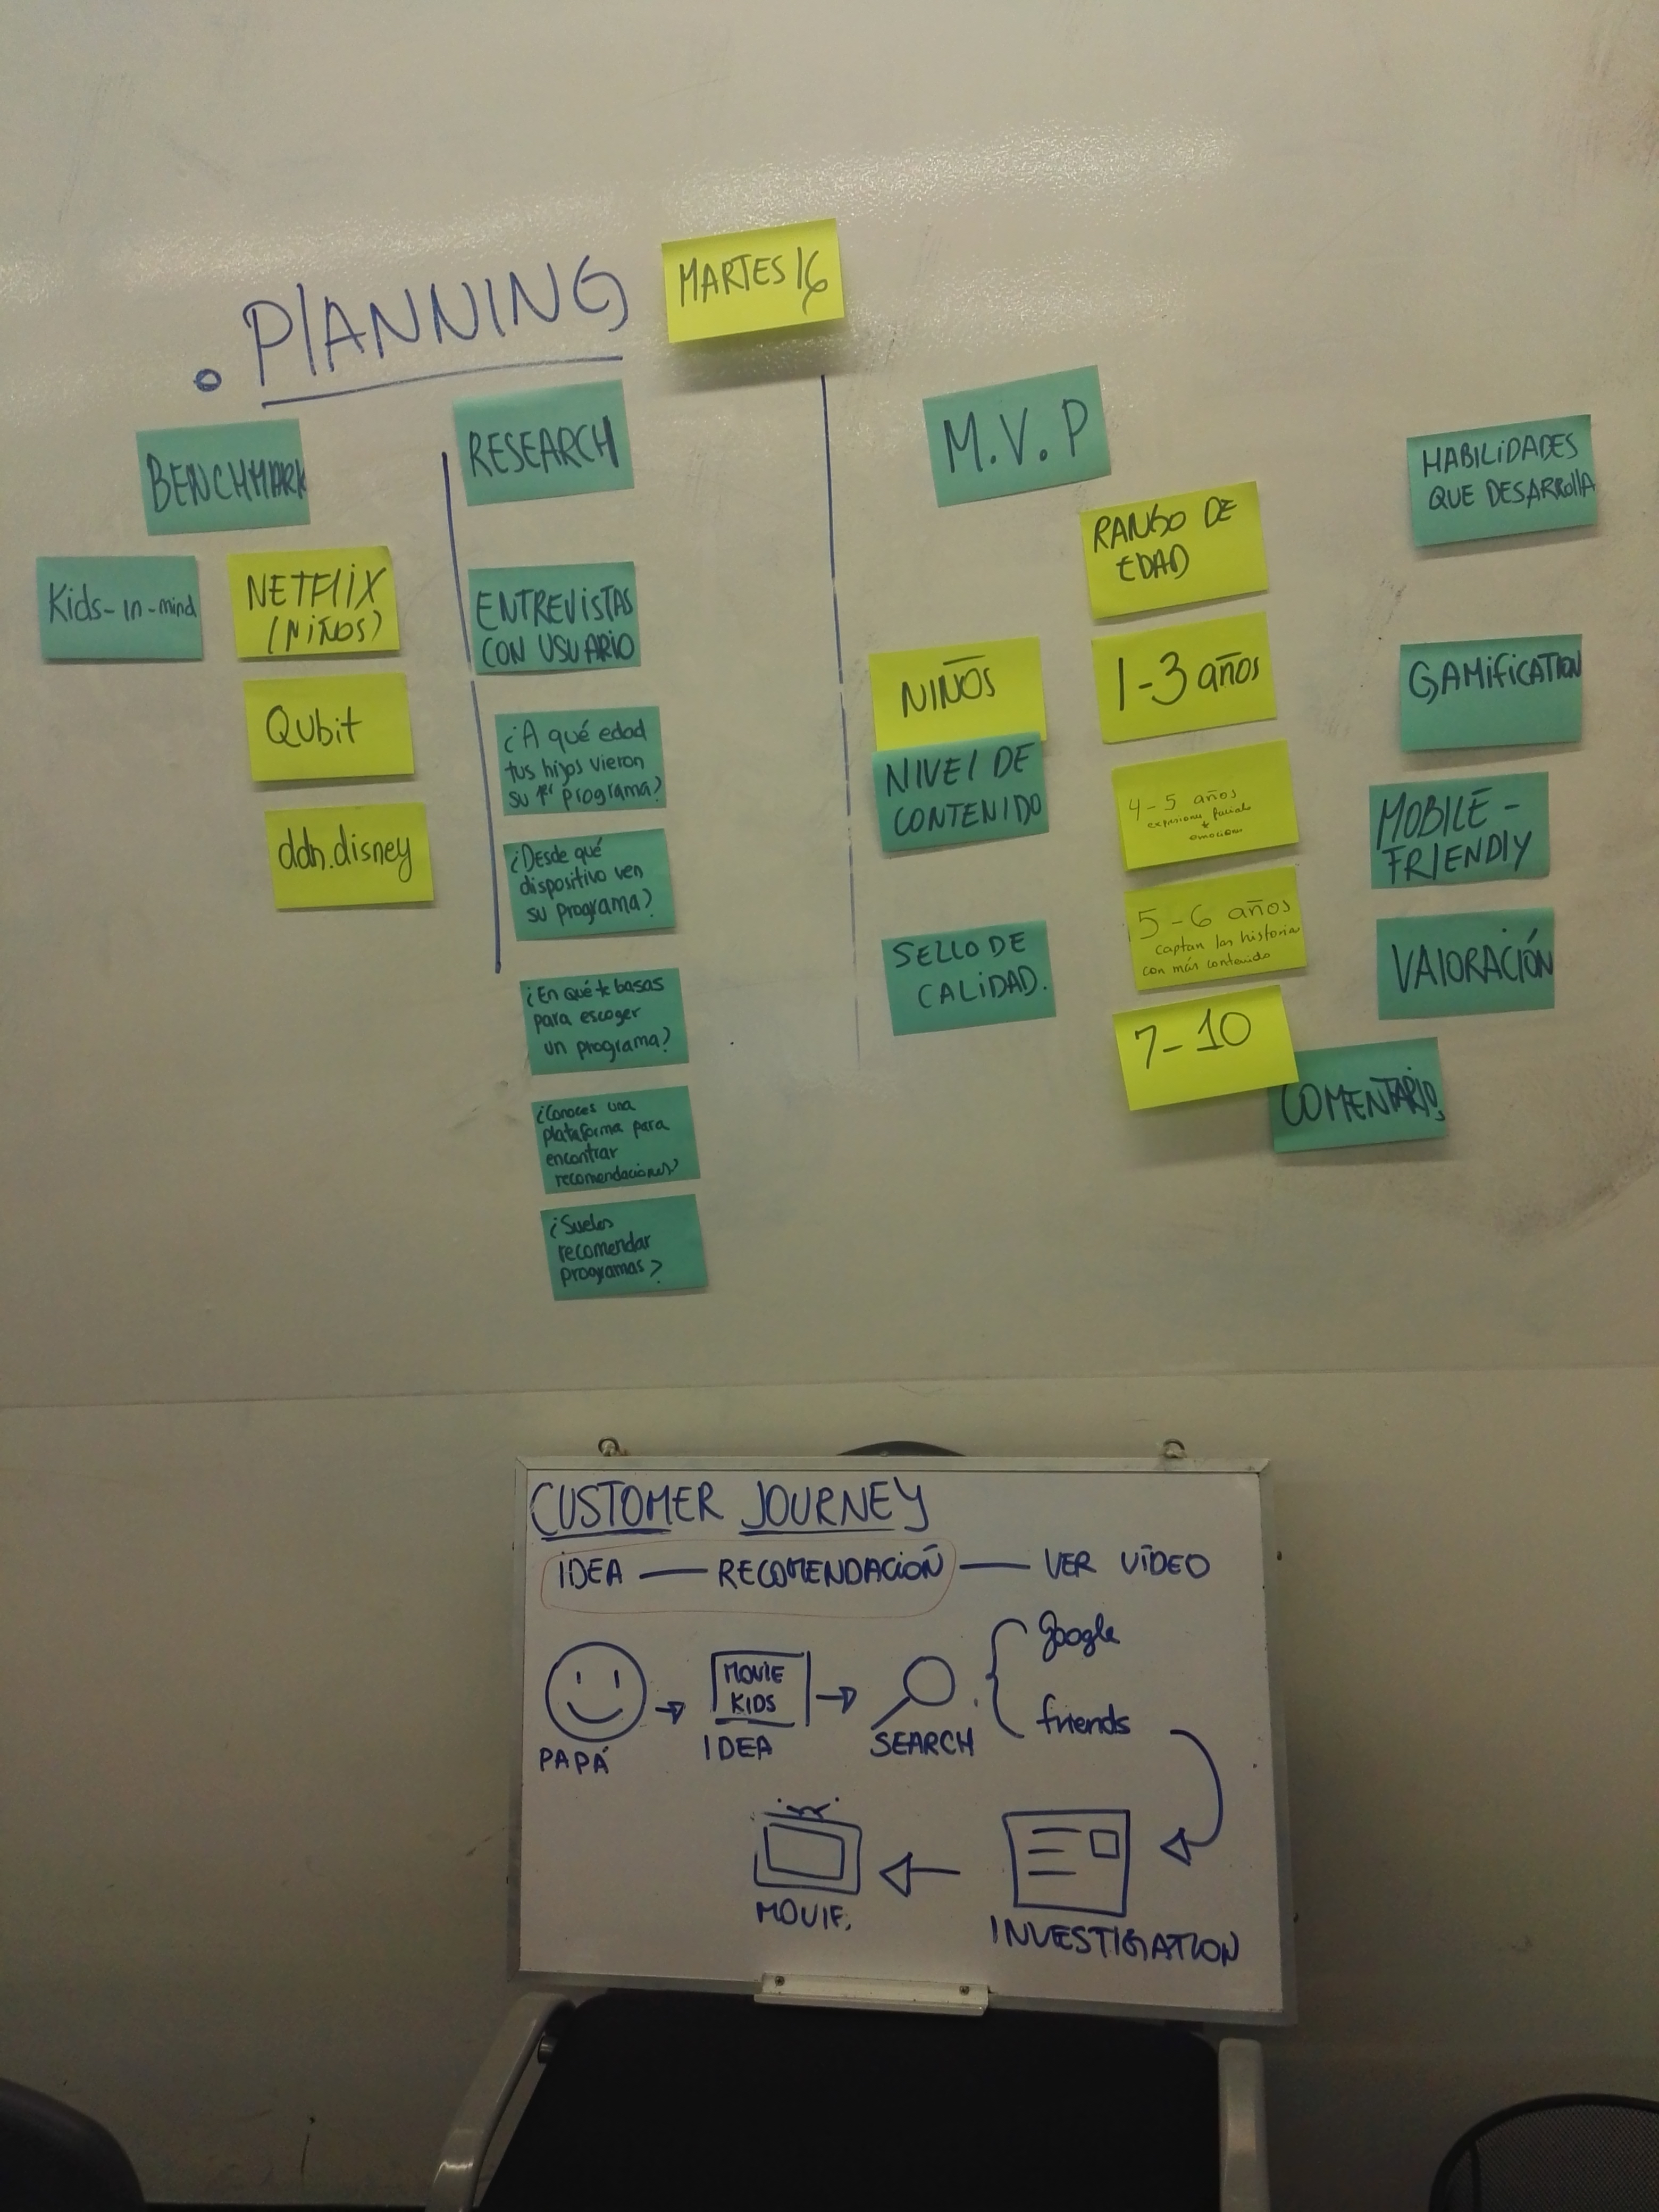 . PLANNING
MARTES 16
BENCHMARK
Kids-in-mind
NETFLIX
(NIÑOS)
Qubit
ddn.disney
RESEARCH
ENTREVISTAS
CON USUARIO
¿A qué edad
tus hijos vieron
su 1er programa?
¿Desde qué
dispositivo ven
su programa?
¿En qué te basas
para escoger
un programa?
¿Conoces una
plataforma para
encontrar
recomendaciones?
¿Sueles
recomendar
programas?
M.V.P
NIÑOS
NIVEL DE
CONTENIDO
SELLO DE
CALIDAD.
RANGO DE
EDAD
1-3 años
4-5 años
expresiones faciales
+
emociones
5-6 años
captan las historias
con más contenido
7-10
HABILIDADES
QUE DESARROLLA
GAMIFICATION
MOBILE-
FRIENDLY
VALORACIÓN
COMENTARIOS
CUSTOMER JOURNEY
IDEA — RECOMENDACIÓN — VER VÍDEO
PAPÁ
MOVIE
KIDS
IDEA
SEARCH
google
friends
INVESTIGATION
MOVIE.